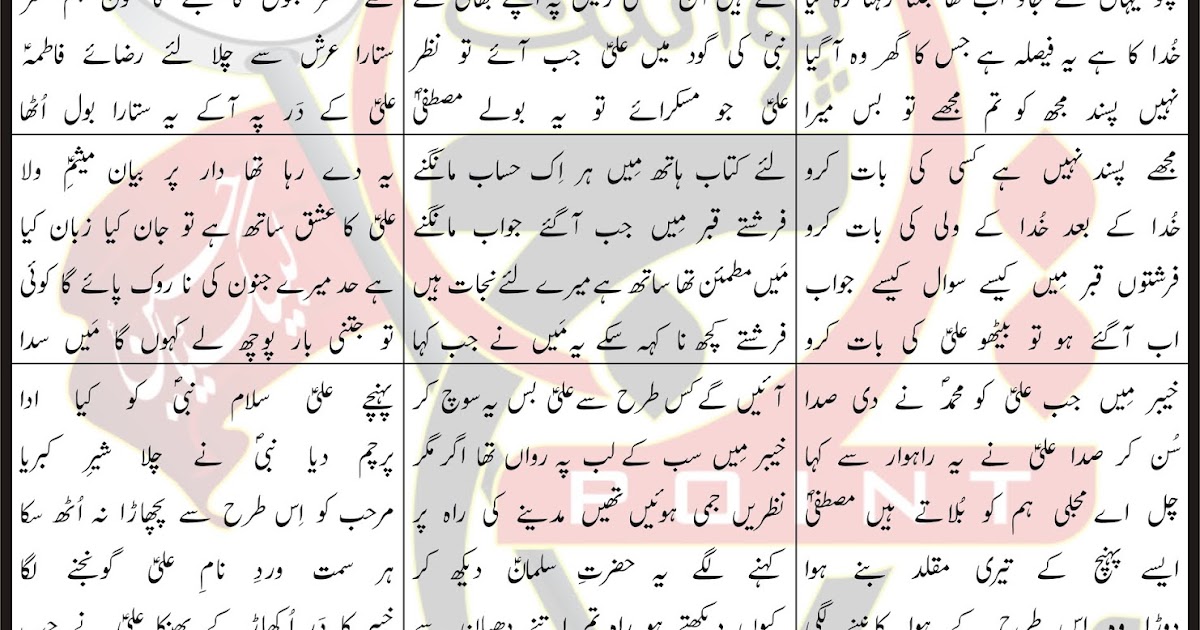 خُدا کا ہے یہ فیصلہ ہے جس کا گھر وہ آ گیا
نہیں پسند مجھ کو تم مجھے تو بس میرا
نبیؐ کی گود میں علیؑ جب آئے تو نظر
علیؑ جو مسکرائے تو یہ بولے مصطفیٰؐ
ستارا عرش سے چلا لئے رضائے فاطمہؑ
علیؑ کے دَر پہ آکے یہ ستارا بول اُٹھا
مجھے پسند نہیں ہے کسی کی بات کرو
خُدا کے بعد خُدا کے ولی کی بات کرو
فرشتوں قبر مِیں کیسے سوال کیسے جواب
اب آگئے ہو تو بیٹھو علیؑ کی بات کرو
لئے کتاب ہاتھ مِیں ہر اِک حساب مانگنے
فرشتے قبر مِیں جب آ گئے جواب مانگنے
مَیں مطمئن تھا ساتھ ہے میرے لئے نجات ہیں
فرشتے کچھ نا کہہ سکے یہ مَیں نے جب کہا
یہ دے رہا تھا دار پر بیان میثمِؑ ولا
علیؑ کا عشق ساتھ ہے تو جان کیا زبان کیا
ہے حد میرے جنون کی نا روک پائے گا کوئی
تو جتنی بار پوچھ لے کہوں گا مَیں سدا
خیبر مِیں جب علیؑ کو محمدؐ نے دی صدا
سُن کر صدا علیؑ نے یہ راہوار سے کہا
چل اے مجلی ہم کو بُلاتے ہیں مصطفیٰؐ
ایسے پہنچ کے تیری مقلد بنے ہوا
دوڑا وہ اس طرح کے ہوا کانپنے لگی
آئیں گے کس طرح سے علیؑ بس یہ سوچ کر
خیبر مِیں سب کے لب پہ رواں تھا اگر مگر
نظریں جمی ہوئیں تھیں مدینے کی راہ پر
کہنے لگے یہ حضرتِ سلمانؑ دیکھ کر
کیوں دیکھتے ہو راہ تم اتنے دھیان سے
پہنچے علیؑ سلام نبیؐ کو کیا ادا
پرچم دیا نبیؐ نے چلا شیرِ کبریا
مرحب کو اِس طرح سے پچھاڑا نہ اُٹھ سکا
ہر سمت وردِ نامِ علیؑ گونجنے لگا
خیبر کا دَر اُکھاڑ کے پھینکا علیؑ نے جب
POINT